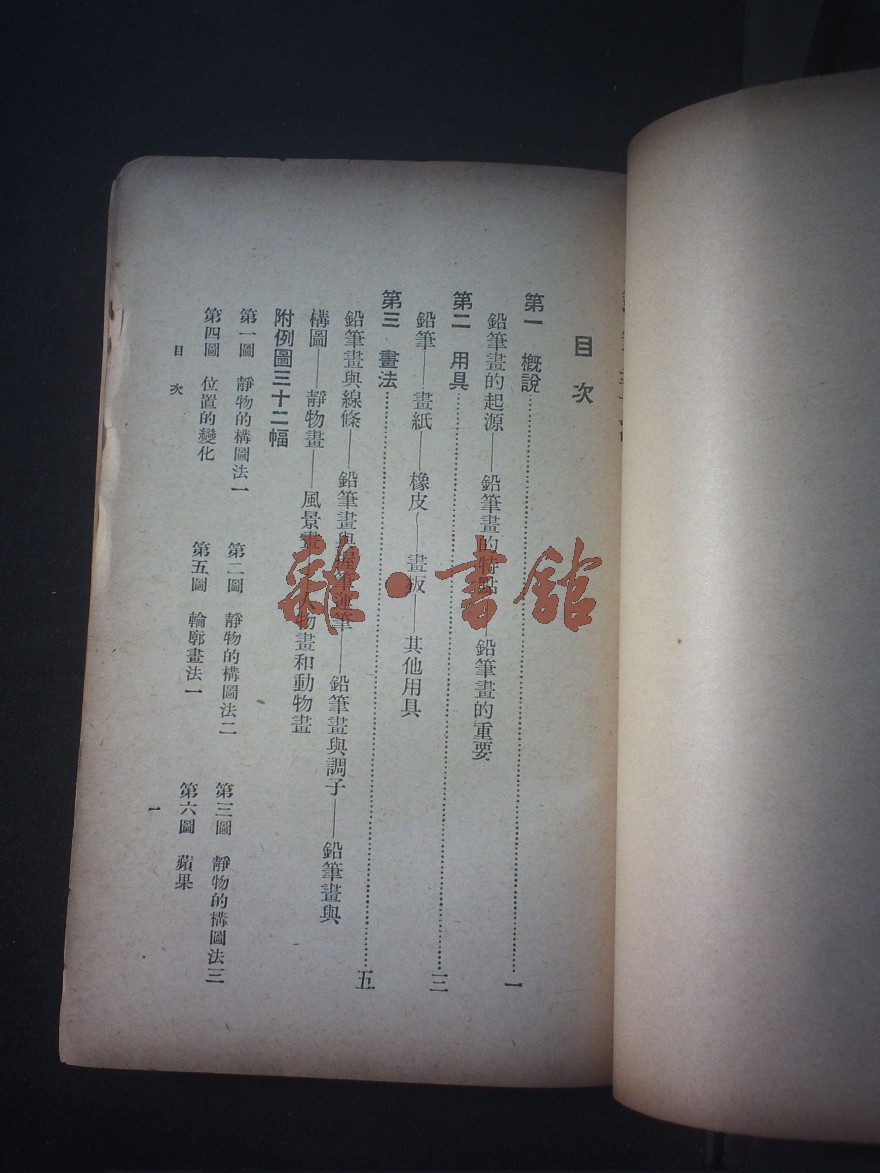 目次
第一 概說……一
鉛筆畫的起源——鉛筆畫的特點——鉛筆畫的重要
第二 用具……三
鉛筆——畫紙——橡皮——畫板——其他用具
第三 畫法……五
鉛筆畫與線條——鉛筆畫與握筆運筆——鉛筆畫與調子——鉛筆畫與
構圖——靜物畫——風景畫——人物畫和動物畫
附例圖三十二幅
第一圖 靜物的構圖法一 第二圖 靜物的構圖法二 第三圖 靜物的構圖法三
第四圖 位置的變化 第五圖 輪廓畫法一 第六圖 蘋果
目次 一
雜·書館